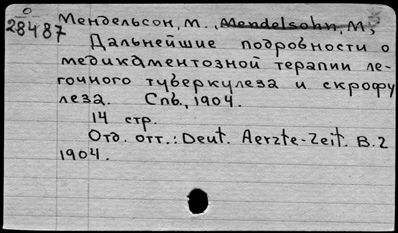 0
28487
Мендельсон, М., Mendelsohn, M,
Дальнейшие подробности о
медикаментозной терапии ле-
гочного туберкулеза и скрофу
леза. Спв., 1904.
14 стр.
Отд. отт.: Deut. Aerzte-Zeit. B.2
1904.